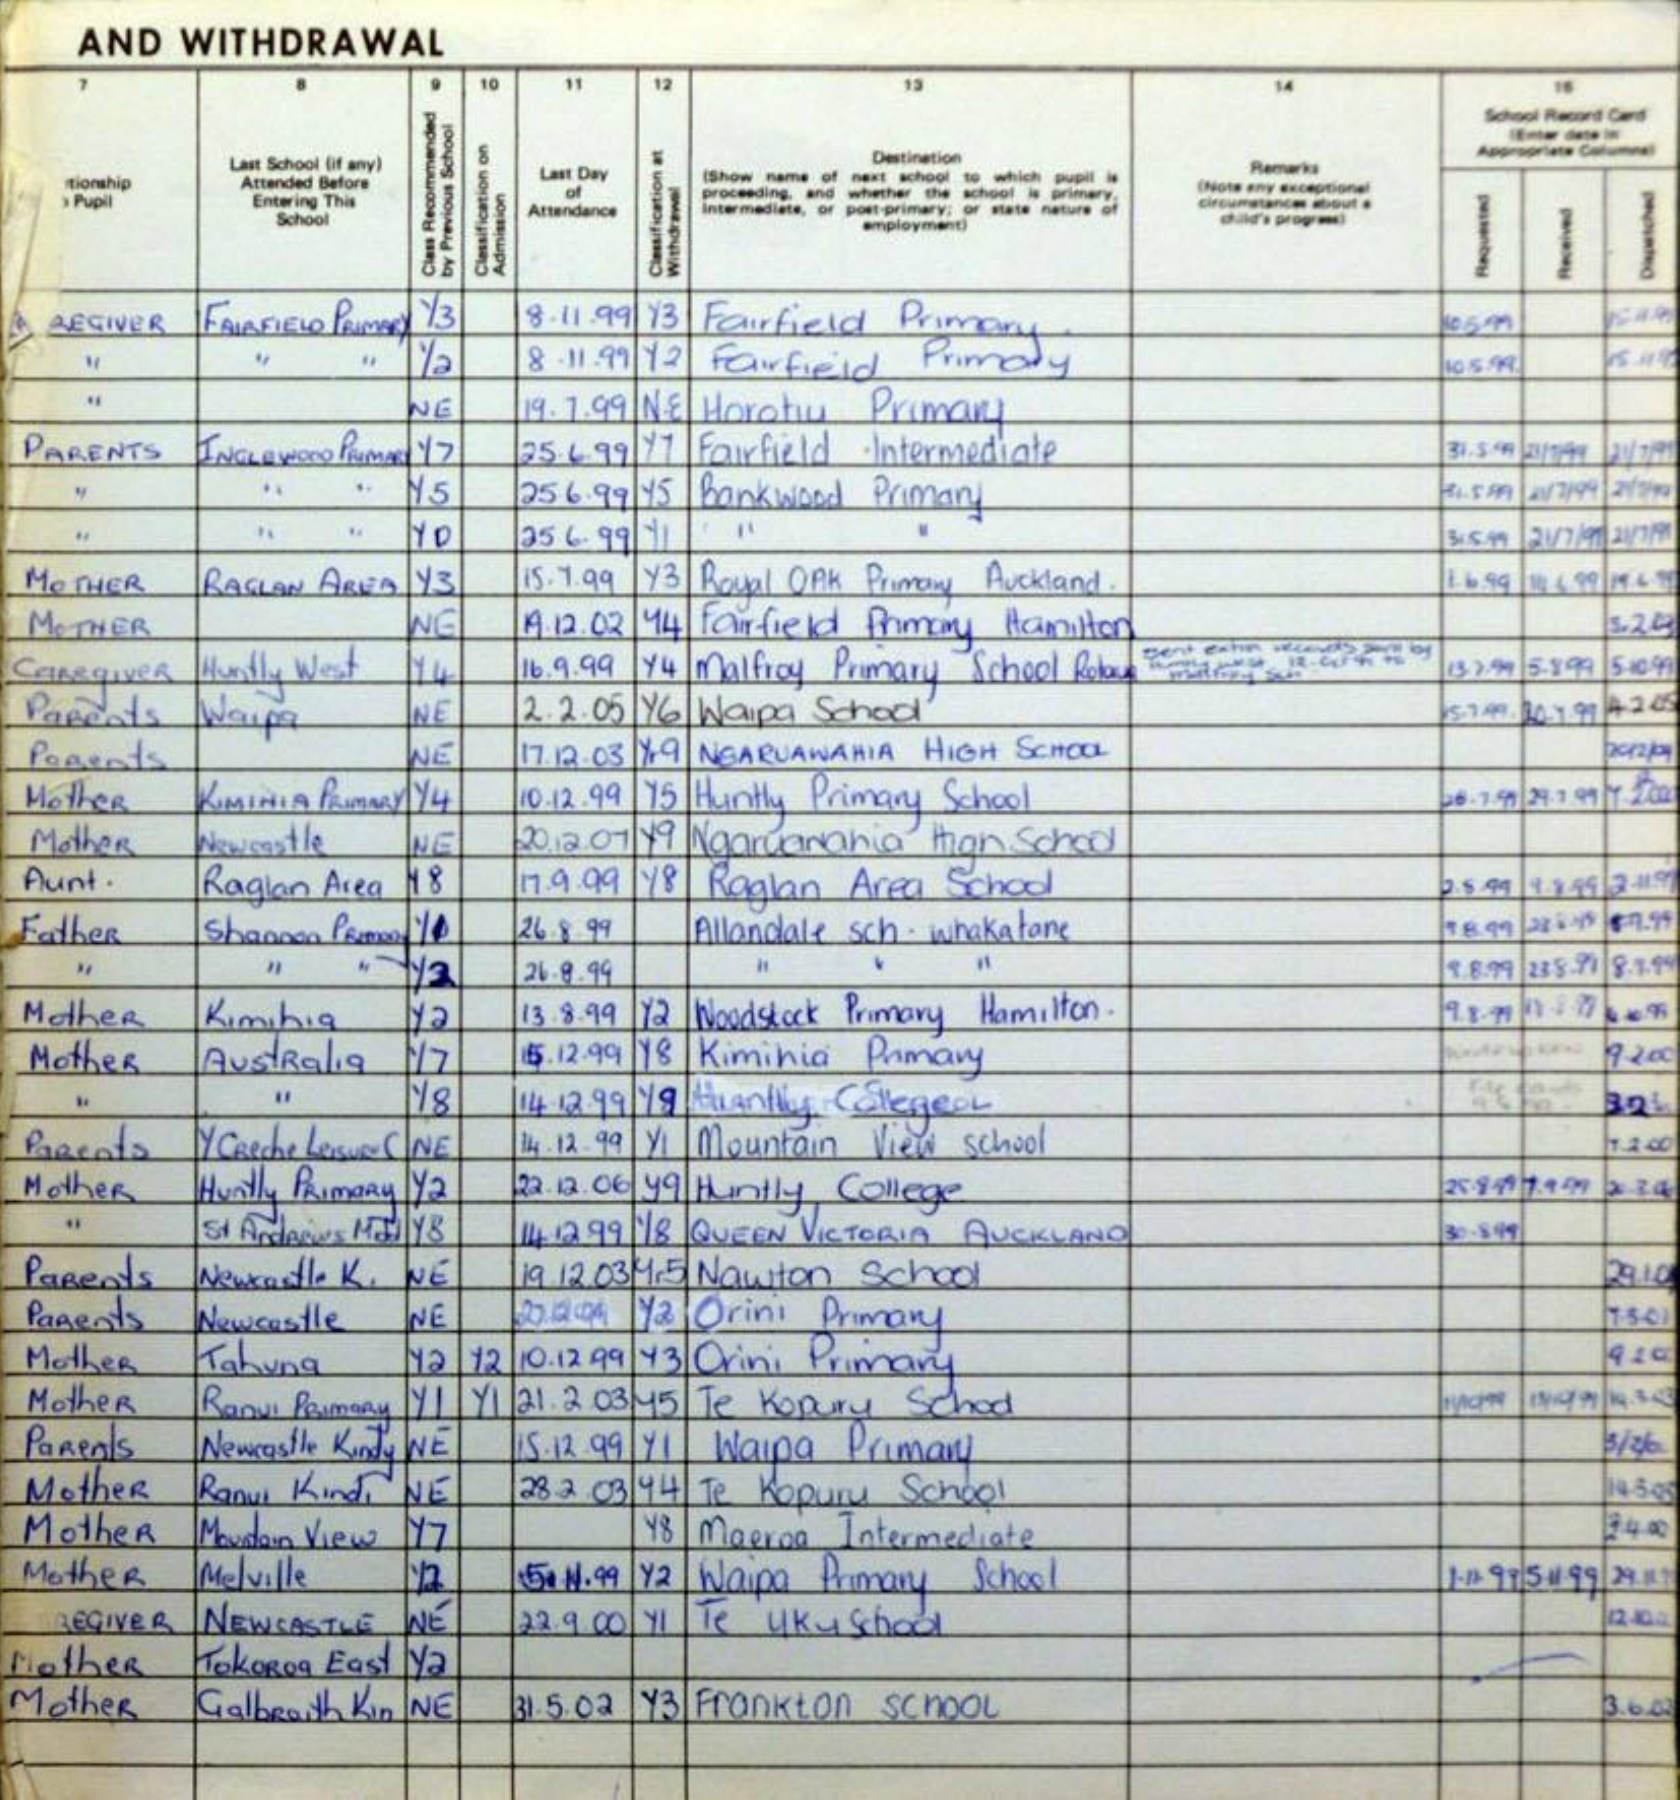 AND WITHDRAWAL
7 8 9 10 11 12 13 14 15
tionship Pupil
Last School (if any) Attended Before Entering This School
Class Recommended by Previous School
Classification on Admission
Last Day of Attendance
Classification at Withdrawal
Destination (Show name of next school to which pupil is proceeding, and whether the school is primary, intermediate, or post-primary; or state nature of employment)
Remarks (Note any exceptional circumstances about a child's progress)
School Record Card (Enter date in Appropriate Columns)
Requested Received Dispatched
REGIVER FAIRFIELD PRIMARY Y3 8.11.99 Y3 Fairfield Primary. 10.5.99 15.11.99
" " " Y2 8.11.99 Y2 Fairfield Primary 10.5.99
" NE 19.7.99 NE Horotiu Primary
PARENTS INGLEWOOD PRIMARY Y7 25.6.99 Y7 Fairfield Intermediate 31.5.99 21/7/99 21/7/99
" " " Y5 25 6.99 Y5 Bankwood Primary 31.5.99 21/7/99 21/7/99
" " " Y0 25 6.99 Y1 " " 31.5.99 21/7/99 21/7/99
MOTHER RAGLAN AREA Y3 15.7.99 Y3 Royal OAK Primary Auckland. 1.6.99
MOTHER NE 19.12.02 Y4 Fairfield Primary Hamilton
Caregiver Huntly West Y4 16.9.99 Y4 Malfroy Primary School sent extra records 13.7.99 5.8.99 5.10.99
Parents Waipa NE 2.2.05 Y6 Waipa School 15.7.99 4.2.05
Parents NE 17.12.03 Yr9 NGARUAWAHIA HIGH SCHOOL
Mother KIMIHIA PRIMARY Y4 10.12.99 Y5 Huntly Primary School 29.7.99
Mother Newcastle NE 20.12.07 Y9 Ngaruawahia High School
Aunt. Raglan Area Y8 17.9.99 Y8 Raglan Area School 9.8.99
Father Shannon Primary 26.8.99 Allandale sch. whakatane 9.8.99
" " " 26.8.99 " " " 9.8.99 23.8.99
Mother Kimihia Y2 13.8.99 Y2 Woodstock Primary Hamilton. 9.8.99
Mother Australia Y7 15.12.99 Y8 Kimihia Primary 9.2.00
" " Y8 14.12.99 Y9 Huntly College
Parents Y Creche Leisure C NE 14.12.99 Y1 Mountain View school 7.2.00
Mother Huntly Primary Y2 22.12.06 Y9 Huntly College 25.8.99 7.9.99
" St Andrews Y8 14.12.99 Y8 QUEEN VICTORIA AUCKLAND 30.8.99
Parents Newcastle K. NE 19.12.03 Yr5 Nawton School
Parents Newcastle NE Y2 Orini Primary
Mother Tahuna Y2 Y2 10.12.99 Y3 Orini Primary
Mother Ranui Primary Y1 Y1 21.2.03 Y5 Te Kopuru School
Parents Newcastle Kindy NE 15.12.99 Y1 Waipa Primary
Mother Ranui Kindi NE 28.2.03 Y4 Te Kopuru School
Mother Mountain View Y7 Y8 Maeroa Intermediate
Mother Melville Y2 5.11.99 Y2 Waipa Primary School 1.11.99 5.11.99
REGIVER NEWCASTLE NE 22.9.00 Y1 Te Uku School
Mother Tokoroa East Y2
Mother Galbraith Kin NE 31.5.02 Y3 Frankton SCHOOL 3.6.02